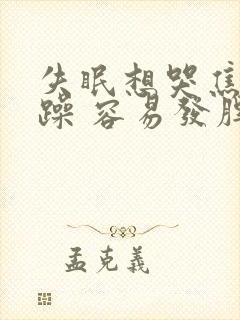 失眠想哭焦
躁 容易發脾
孟克義